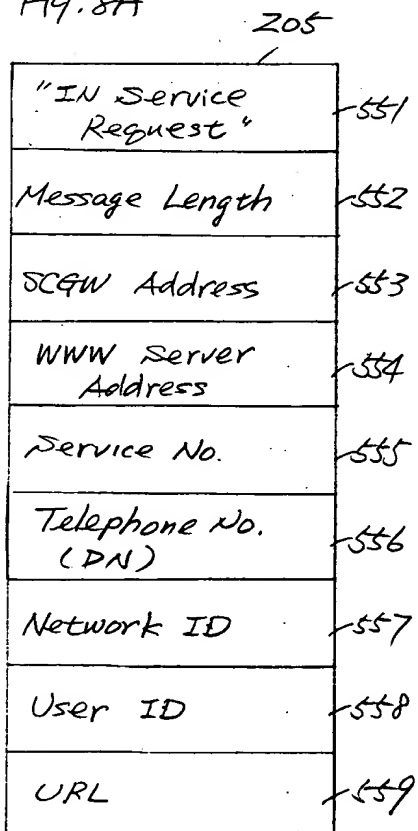 Fig. 8A
205
"IN Service
Request"
551
Message Length
552
SCGW Address
553
WWW Server
Address
554
Service No.
555
Telephone No.
(DN)
556
Network ID
557
User ID
558
URL
559